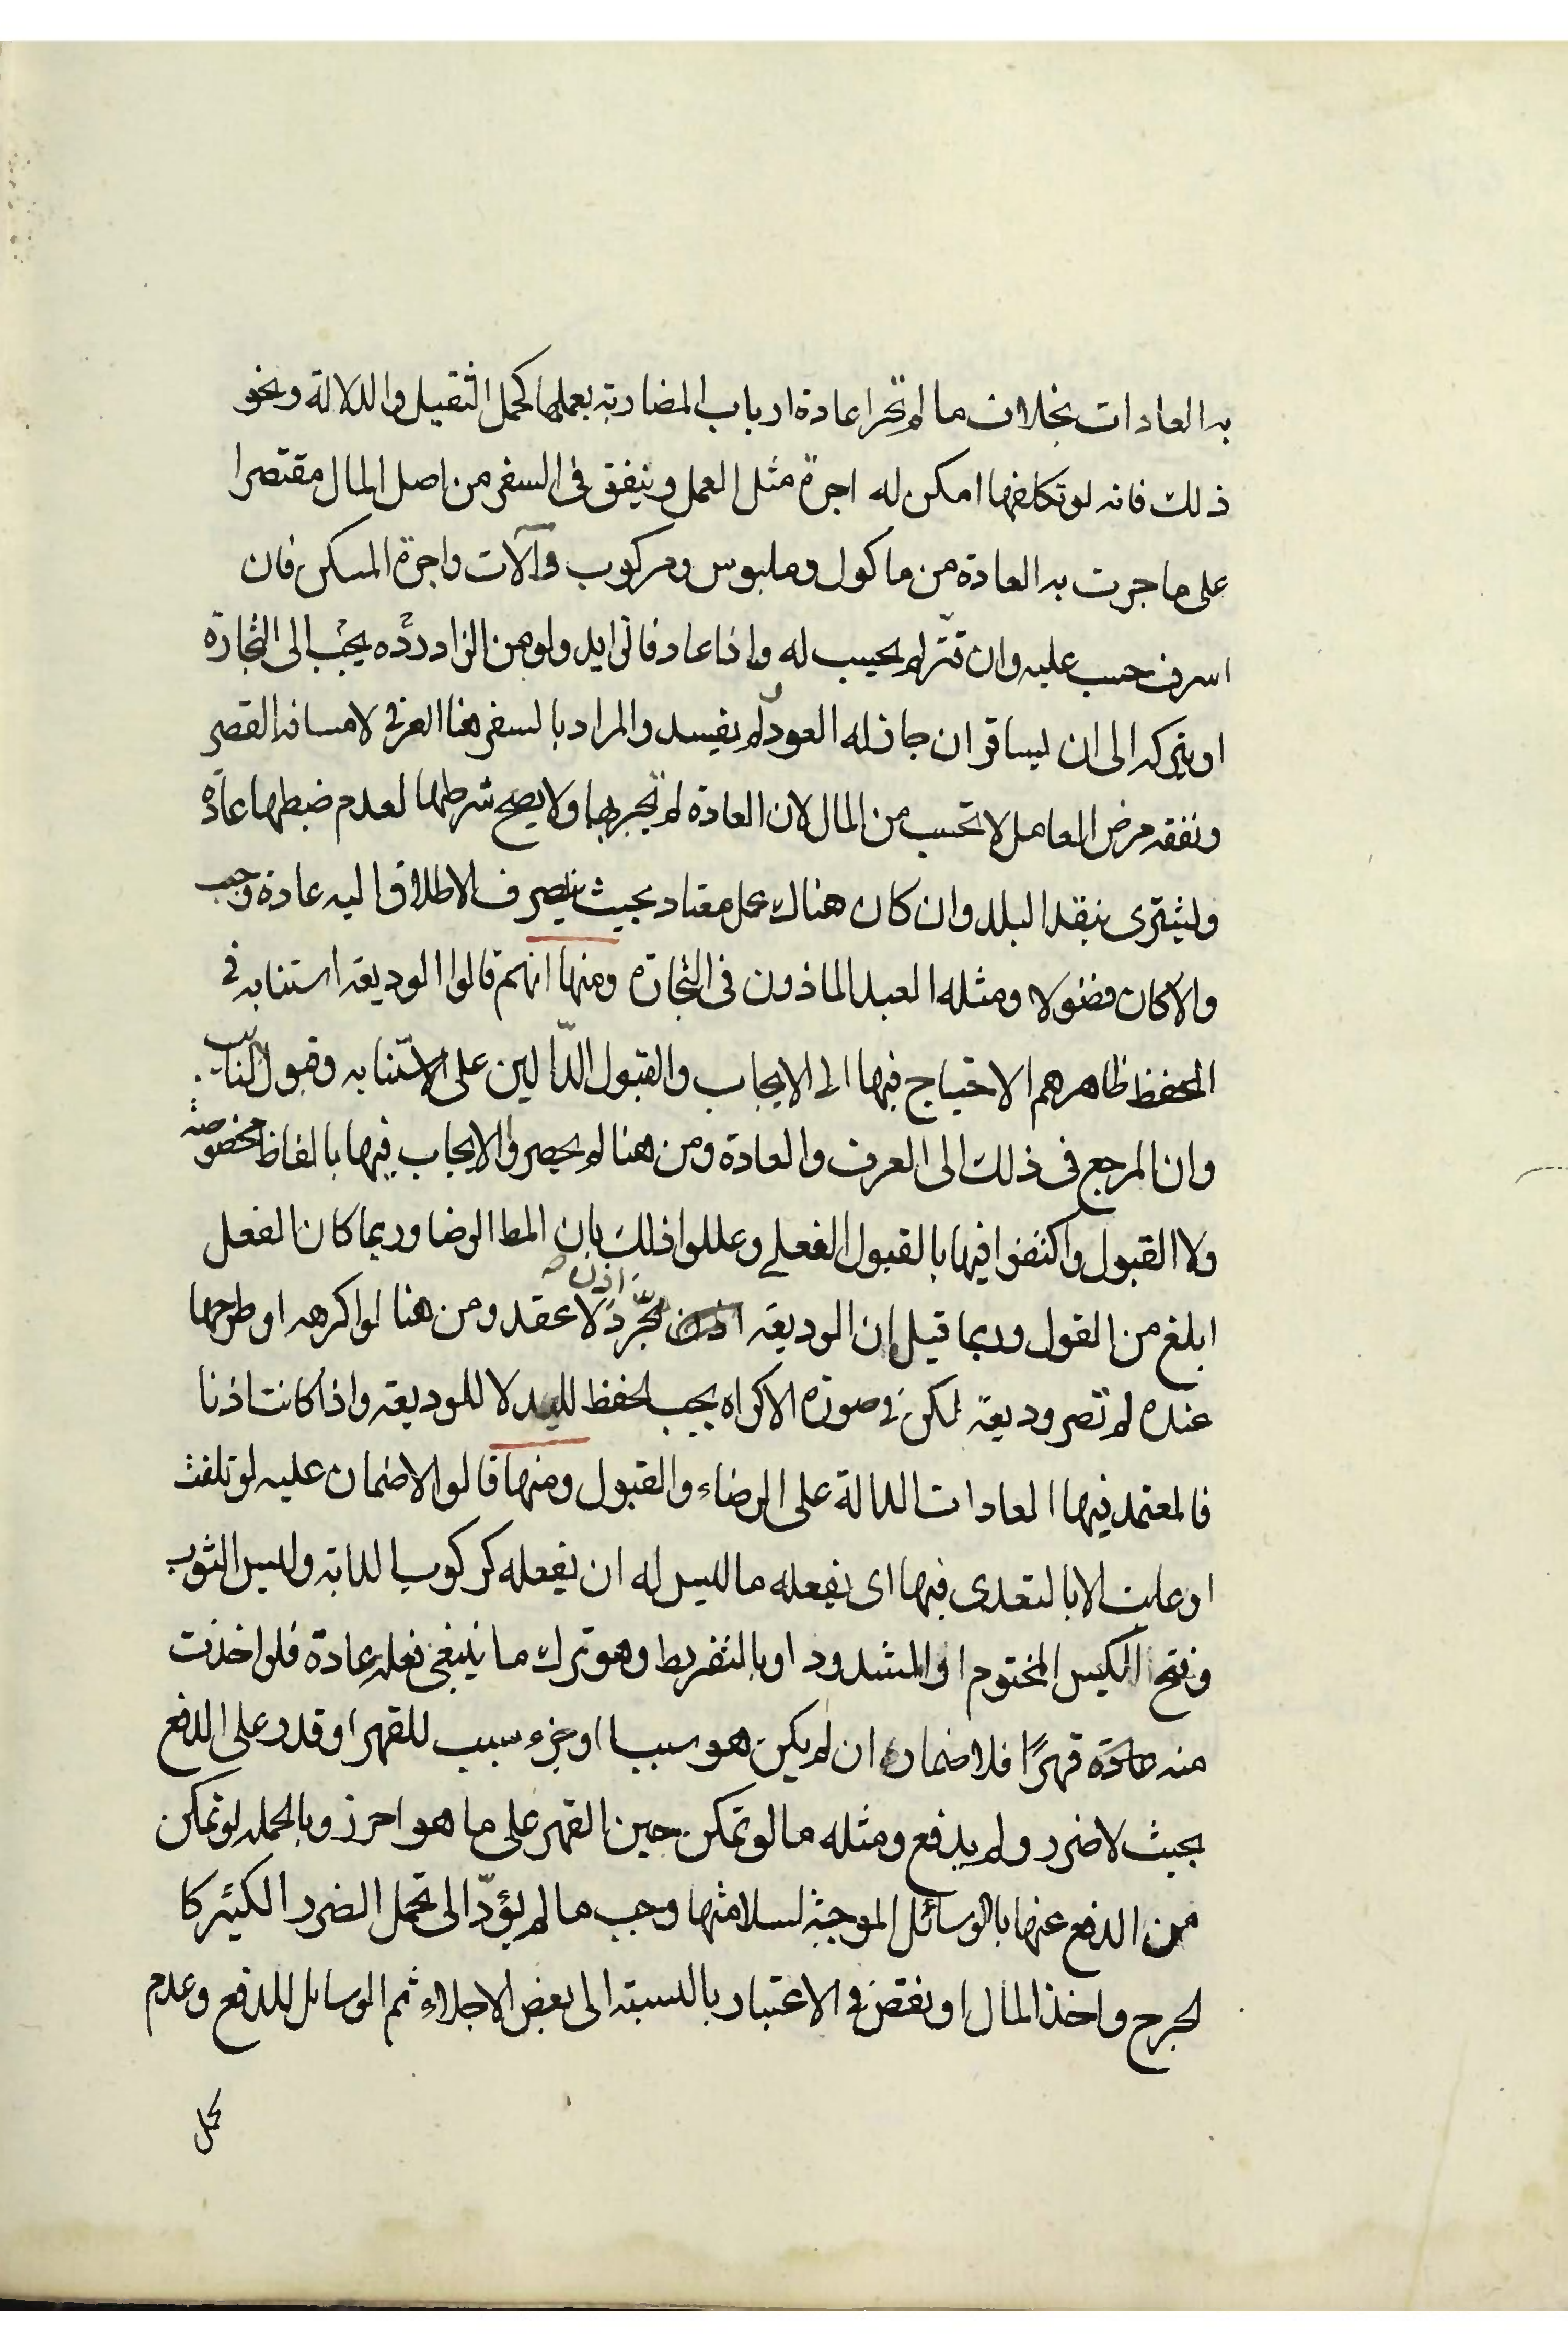 به العادات بخلاف ما لم تجر عادة ارباب المضاربة بعملها كحمل الثقيل والدلالة ونحو
ذلك فانه لو تكلفها امكن له اجرة مثل العمل وينفق فى السفر من اصل المال مقتصرا
على ما جرت به العادة من ماكول وملبوس ومركوب وآلات واجرة المسكن فان
اسرف حسب عليه وان قتّر لم يحسب له واذا عاد فالزايد ولو من الزاد ردّه يجب الى التجارة
او يتركه الى ان يسافر ان جاز له العود لم يفسد والمراد بالسفر هنا العرفى لا مسافة القصر
ونفقة مرض العامل لا تحسب من المال لان العادة لم تجر بها ولا يصح شرطها لعدم ضبطها عادة
وليشترى بنقد البلد وان كان هناك عمل معتاد بحيث ينصرف الاطلاق اليه عادة وجب
والا كان فضولا ومثله العبد الماذون فى التجارة ومنها انهم قالوا الوديعة استنابه فى
الحفظ ظاهرهم الاحتياج فيها الى الايجاب والقبول الدّالين على الاستنابه وقبول النائب
وان المرجع فى ذلك الى العرف والعادة ومن هنا لم يحصروا الايجاب فيها بالفاظ مخصوصة
ولا القبول واكتفوا فيها بالقبول الفعلي وعللوا ذلك بان المط الرضا وربما كان الفعل
ابلغ من القول وربما قيل ان الوديعة اذن مجّرد لا عقد ومن هنا لو اكرهه او طرحها
عنده لم تصر وديعة لكن فى صورة الاكراه يجب الحفظ لليد لا للوديعة واذا كانت اذنا
فالمعتمد فيها العادات الدالة على الرضاء والقبول ومنها قالوا لا ضمان عليه لو تلفت
او عابت الا بالتعدى فيها اى بفعله ما ليس له ان يفعله كركوب الدابة ولبس الثوب
وفتح الكيس المختوم او المشدود او بالتفريط وهو ترك ما ينبغى فعله عادة فلو اخذت
منه عادة قهرًا فلا ضمان ان لم يكن هو سببا او جزء سبب للقهر او قدر على الدفع
بحيث لا ضرر ولم يدفع ومثله ما لو تمكن حين القهر على ما هو احرز وبالجملة لو تمكن
من الدفع عنها بالوسائل الموجبة لسلامتها وجب ما لم يؤدّ الى تحمل الضرر الكثير كا
لجرح واخذ المال او نقض فى الاعتبار بالنسبة الى بعض الاجلاء ثم الوسايل للدفع وعدم